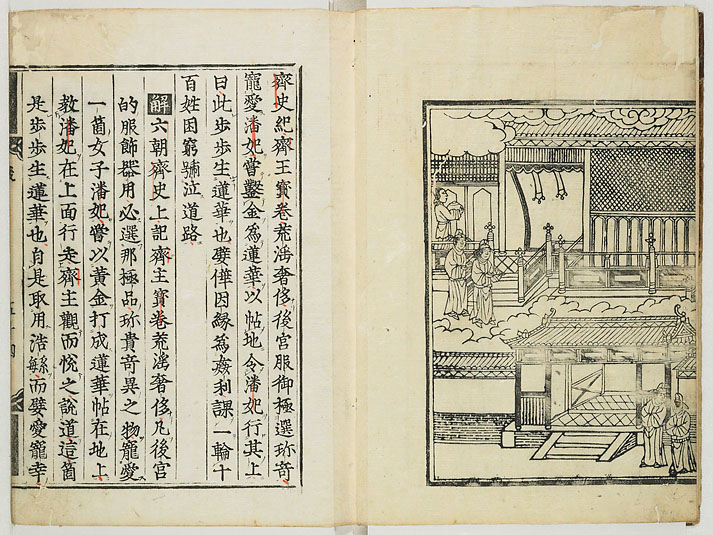 齊史紀齊王寶卷荒滛奢侈後宮服御極選珎竒
寵愛潘妃嘗鑿金爲蓮華以帖地令潘妃行其上
曰此步步生蓮華也嬖倖因縁為姦利課一輪十
百姓困窮號泣道路
解六朝齊史上記齊主寶卷荒滛奢侈凡後宮
的服飾器用必選那極品珎貴竒異之物寵愛
一箇女子潘妃嘗以黃金打成蓮華帖在地上
教潘妃在上面行走齊主觀而悅之說道這箇
是步步生蓮華也自是取用浩繁而嬖愛寵幸